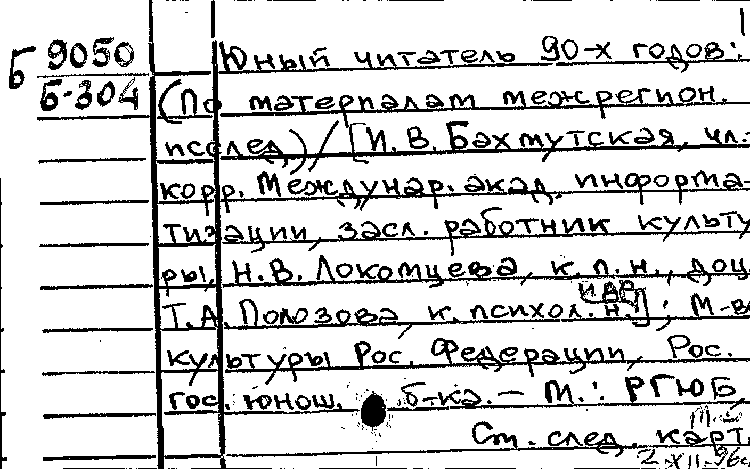 Б 9050 Юный читатель 90-х годов:
Б-304 (По материалам межрегион.
исслед.) / [И. В. Бахмутская, чл.-
корр. Междунар. акад. информа-
тизации, засл. работник культу
ры, Н.В. Локомцева, к. п. н., доц
и др
Т.А. Полозова, к. психол. н.]; М-в
культуры Рос. Федерации, Рос.
гос. юнош. б-ка. — М.: РГЮБ,
См. след. карт.
2-XII-96